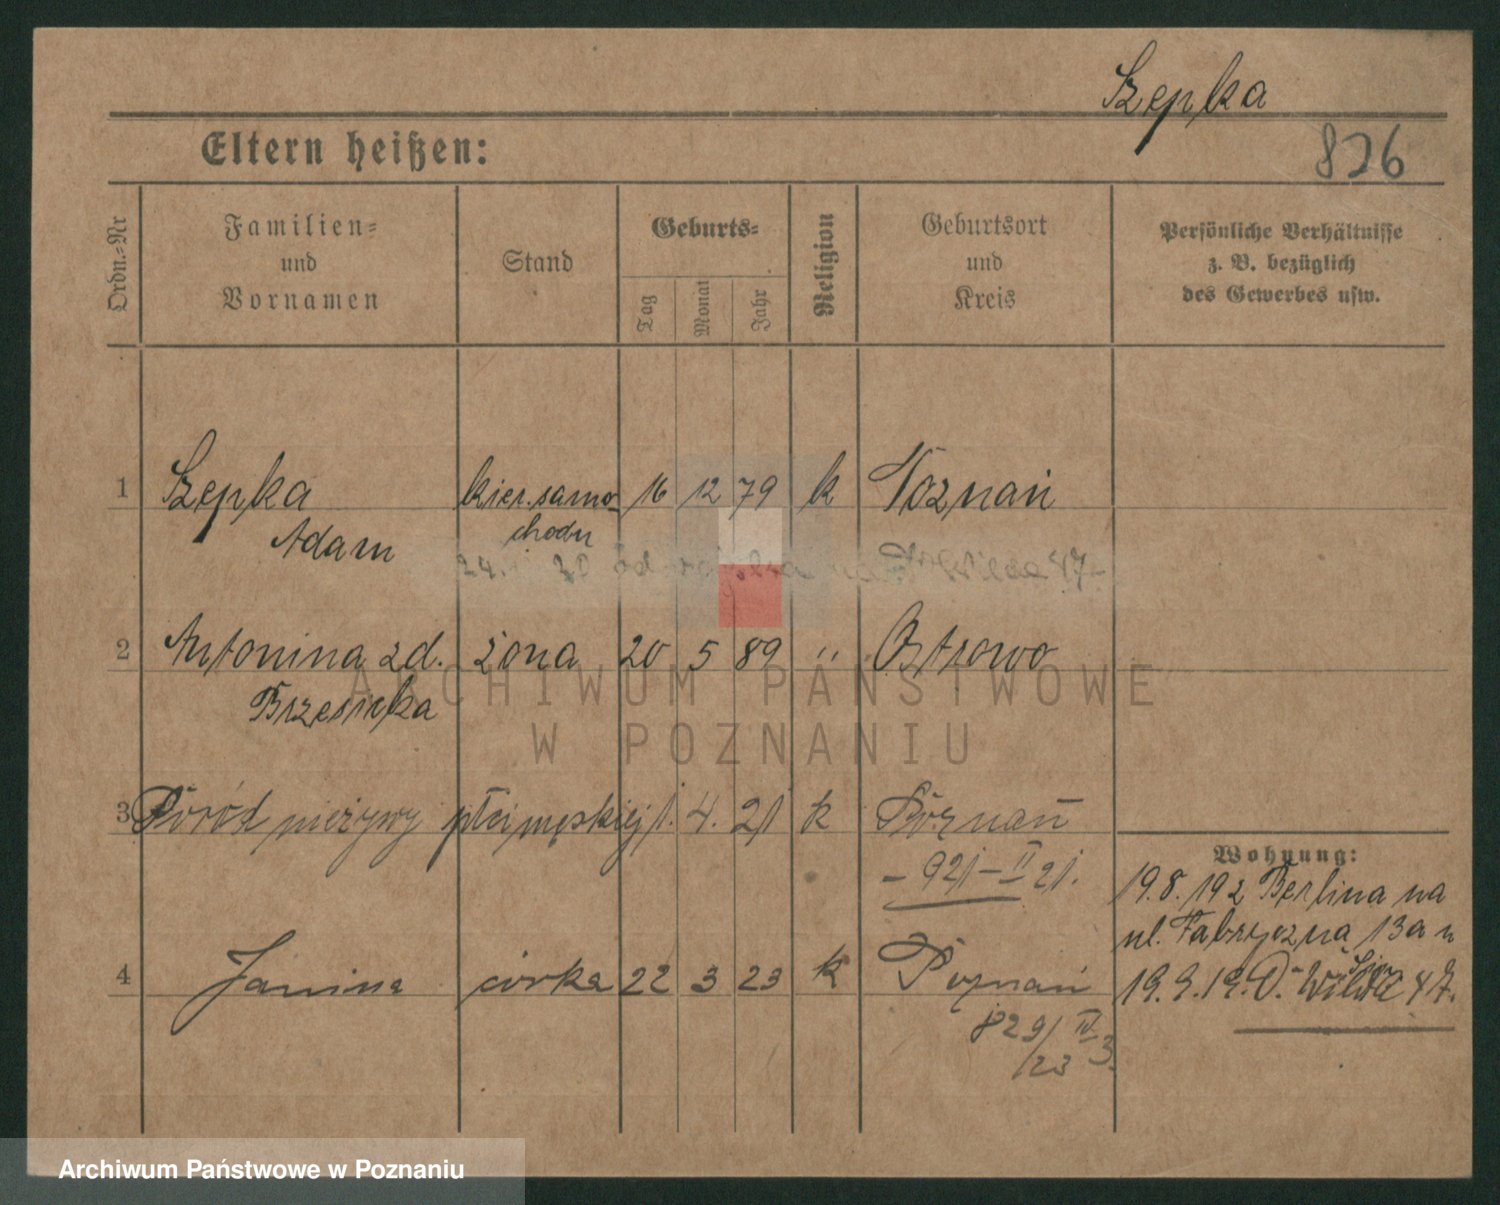 Szepka
Eltern heißen:
826
Ordn.-Nr
Familien-
und
Vornamen
Stand
Geburts-
Tag
Monat
Jahr
Religion
Geburtsort
und
Kreis
Persönliche Verhältnisse
z. B. bezüglich
des Gewerbes usw.
1 Szepka kier. samo- 16 12 79 k Poznań
Adam chodu
24. 20 47
2 Antonina zd. żona 20 5 89 " Ostrowo
Brzesicka
ARCHIWUM PAŃSTWOWE
W POZNANIU
3 Poród nieżywy płci męskiej 1. 4. 21 k Poznań
– 921 – II 21.
Wohnung:
19.8.192 Berlina na
ul. Fabryczna 13a u
4 Janina córka 22 3 23 k Poznań
19.9.19. D. Wilda 47.
829/IV
23 3.
Archiwum Państwowe w Poznaniu